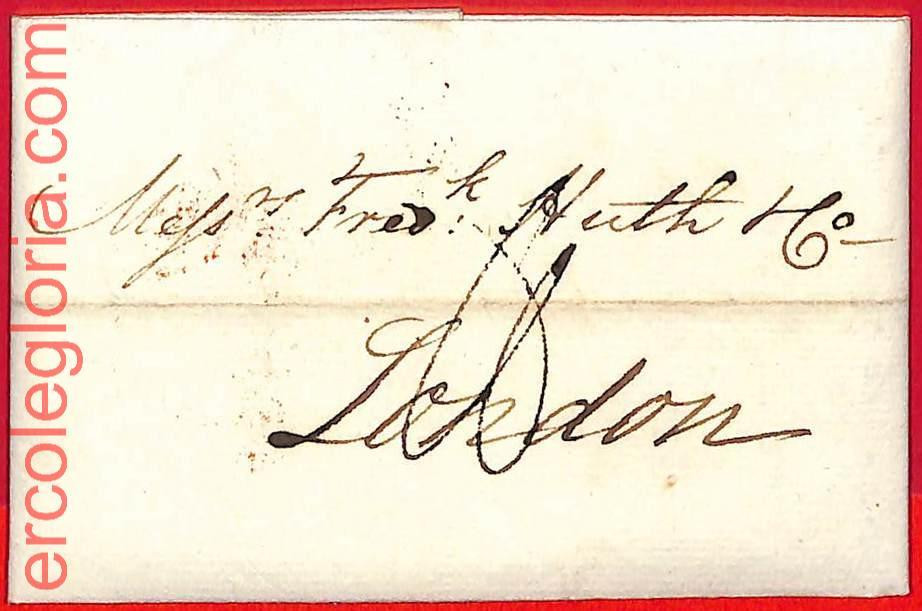 Messrs Fredk. Huth & Co
London
ercolegloria.com